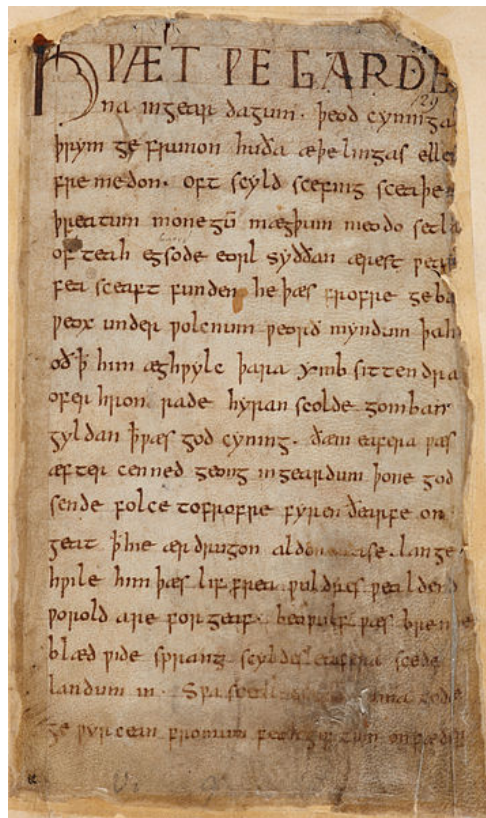 HǷÆT ǷE GARDE
na ingear dagum. þeod cyninga
þrym ge frunon huða æþelingas elle
fremedon. oft scyld scefing sceaþe
þreatum monegū mægþum meodo setla
of teah egsode eorl syððan ærest ƿear
fea sceaft funden he þæs frofre geba
ƿeox under ƿolcnum ƿeorð myndum þah
oð ꝥ him æghƿylc þara ymb sittendra
ofer hron rade hyran scolde gomban
gyldan ꝥ ƿæs god cyning. ðæm eafera ƿæs
æfter cenned geong ingeardum þone god
sende folce tofrofre fyren ðearfe on
geat ꝥ hie ær drugon aldor ase. lange
hƿile him þæs lif frea ƿuldres ƿealdend
ƿorold are for geaf. beoƿulf ƿæs breme
blæd ƿide sprang scyldes eafera scede
landum in. Sƿa sceal ma gode
ge ƿyrcean fromum feoh giftum on fæder
129